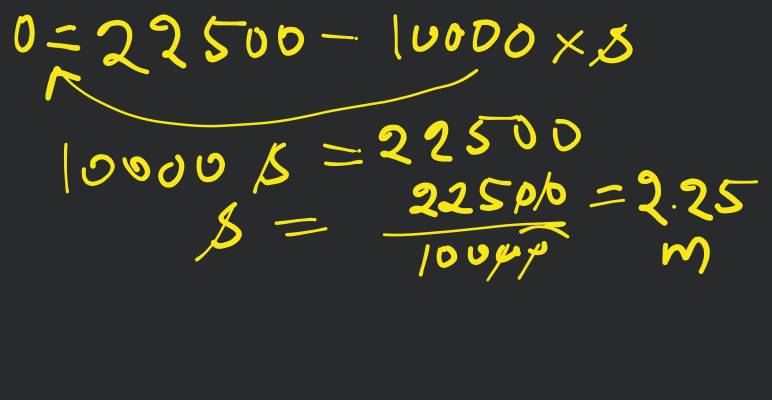 0 = 22500 - 10000 × s
10000 s = 22500
s = 22500/10000 = 2.25 m